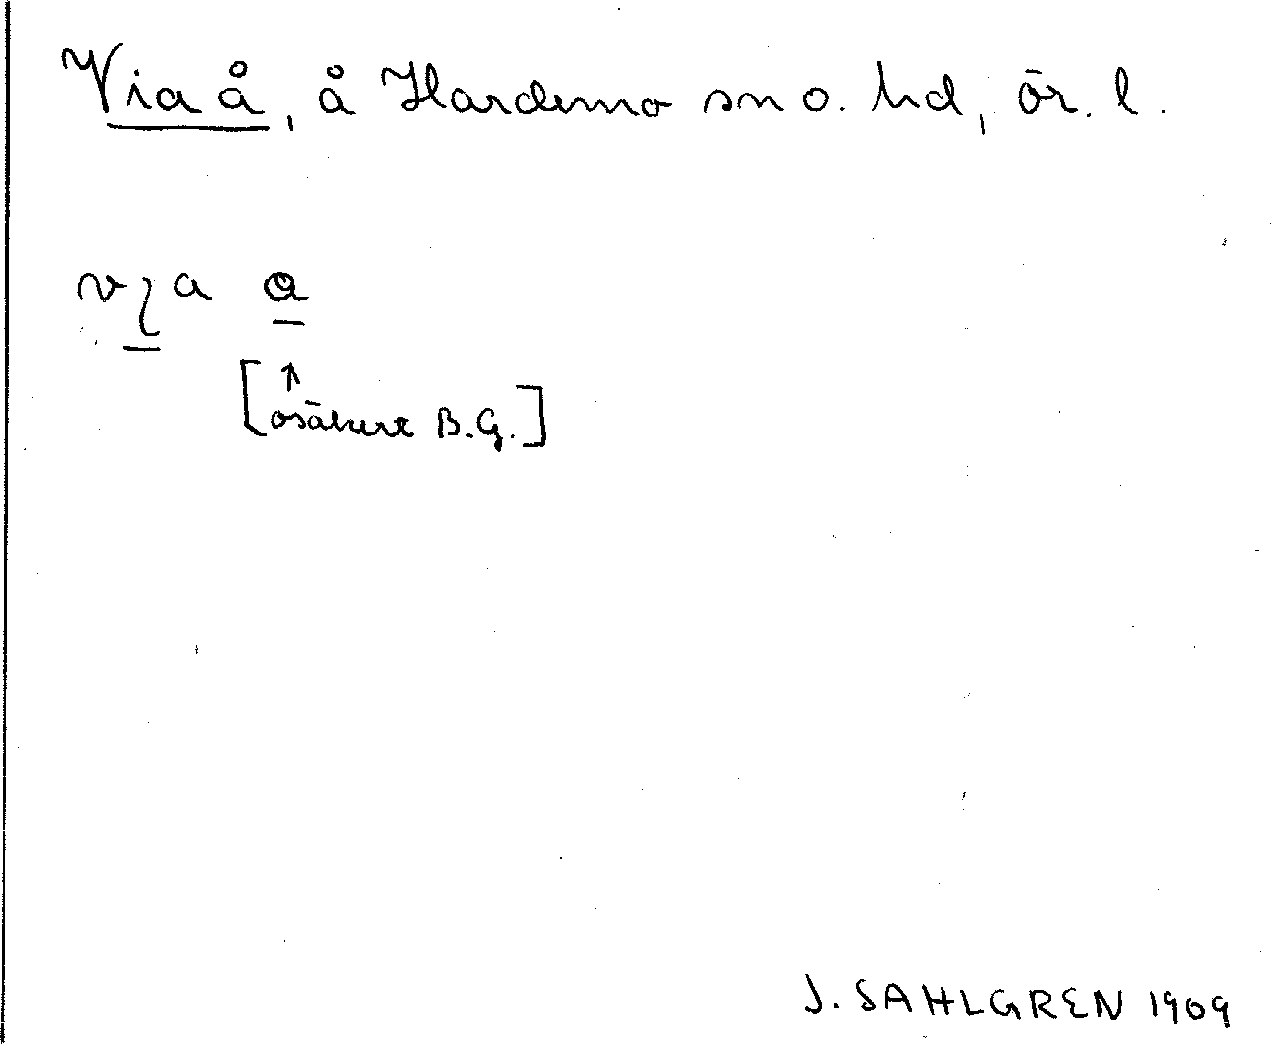 Via å, å Hardemo sn o. hd, ör. l.
a
[↑
osäkert B.G.]
J. SAHLGREN 1909